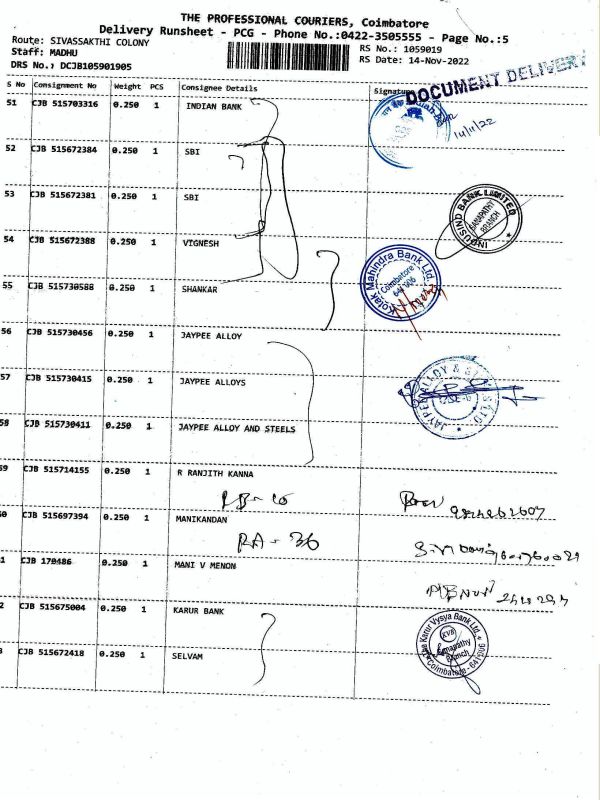 THE PROFESSIONAL COURIERS, Coimbatore
Delivery Runsheet - PCG - Phone No.:0422-3505555 - Page No.:5
Route: SIVASSAKTHI COLONY
RS No.: 1059019
Staff: MADHU
RS Date: 14-Nov-2022
DRS No.: DCJB105901905
DOCUMENT DELIVERY
S No Consignment No Weight PCS Consignee Details Signature
51 CJB 515703316 0.250 1 INDIAN BANK
14/11/22
52 CJB 515672384 0.250 1 SBI
53 CJB 515672381 0.250 1 SBI
INDUSIND BANK LIMITED
GANAPATHY BRANCH
54 CJB 515672388 0.250 1 VIGNESH
Kotak Mahindra Bank Ltd.
Coimbatore
641006
55 CJB 515730588 0.250 1 SHANKAR
56 CJB 515730456 0.250 1 JAYPEE ALLOY
57 CJB 515730415 0.250 1 JAYPEE ALLOYS
JAYPEE ALLOY &
CBE-6
58 CJB 515730411 0.250 1 JAYPEE ALLOY AND STEELS
59 CJB 515714155 0.250 1 R RANJITH KANNA
60 CJB 515697394 0.250 1 MANIKANDAN
RA - 36
1 CJB 170486 0.250 1 MANI V MENON
2 CJB 515675004 0.250 1 KARUR BANK
The Karur Vysya Bank Ltd.
KVB
Ganapathy
Branch
Coimbatore - 641006
3 CJB 515672418 0.250 1 SELVAM